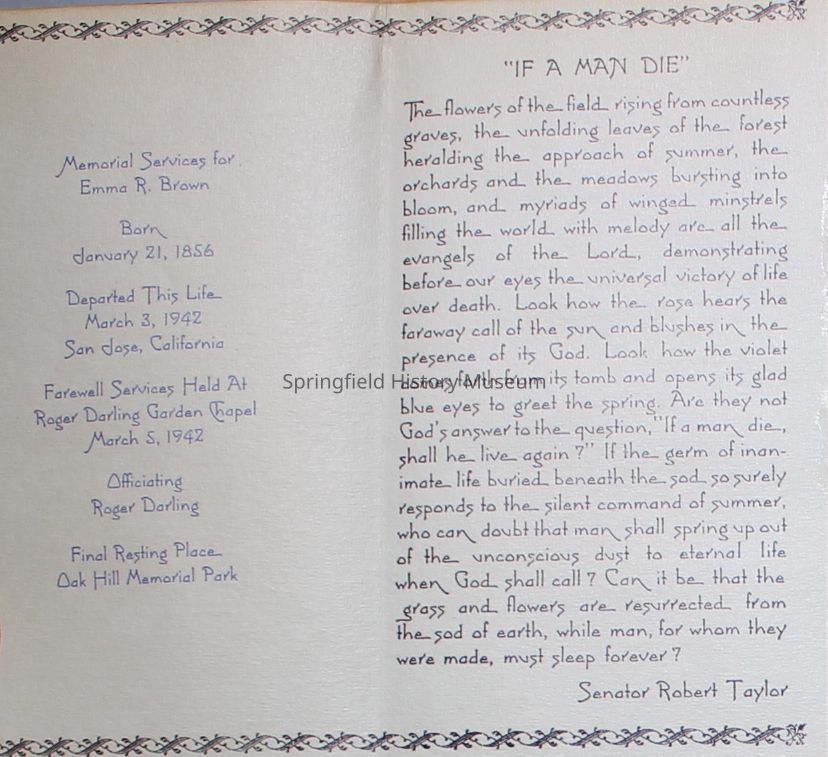 Memorial Services for
Emma R. Brown
Born
January 21, 1856
Departed This Life
March 3, 1942
San Jose, California
Farewell Services Held At
Roger Darling Garden Chapel
March 5, 1942
Officiating
Roger Darling
Final Resting Place
Oak Hill Memorial Park
"IF A MAN DIE"
The flowers of the field rising from countless
graves, the unfolding leaves of the forest
heralding the approach of summer, the
orchards and the meadows bursting into
bloom, and myriads of winged minstrels
filling the world with melody are all the
evangels of the Lord, demonstrating
before our eyes the universal victory of life
over death. Look how the rose hears the
faraway call of the sun and blushes in the
presence of its God. Look how the violet
forth from its tomb and opens its glad
blue eyes to greet the spring. Are they not
God's answer to the question, "If a man die,
shall he live again?" If the germ of inan-
imate life buried beneath the sod so surely
responds to the silent command of summer,
who can doubt that man shall spring up out
of the unconscious dust to eternal life
when God shall call? Can it be that the
grass and flowers are resurrected from
the sod of earth, while man, for whom they
were made, must sleep forever?
Senator Robert Taylor
Springfield History Museum